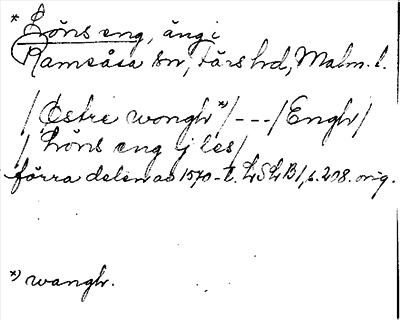 * Löns eng, äng i
Ramsåsa sn, Färs hd, Malm. l.
/Östre wongh*)/---/Engh/
/Löns eng j les/
förra delen av 1570-t. LSLB 1, s. 208. orig.
*) wangh.